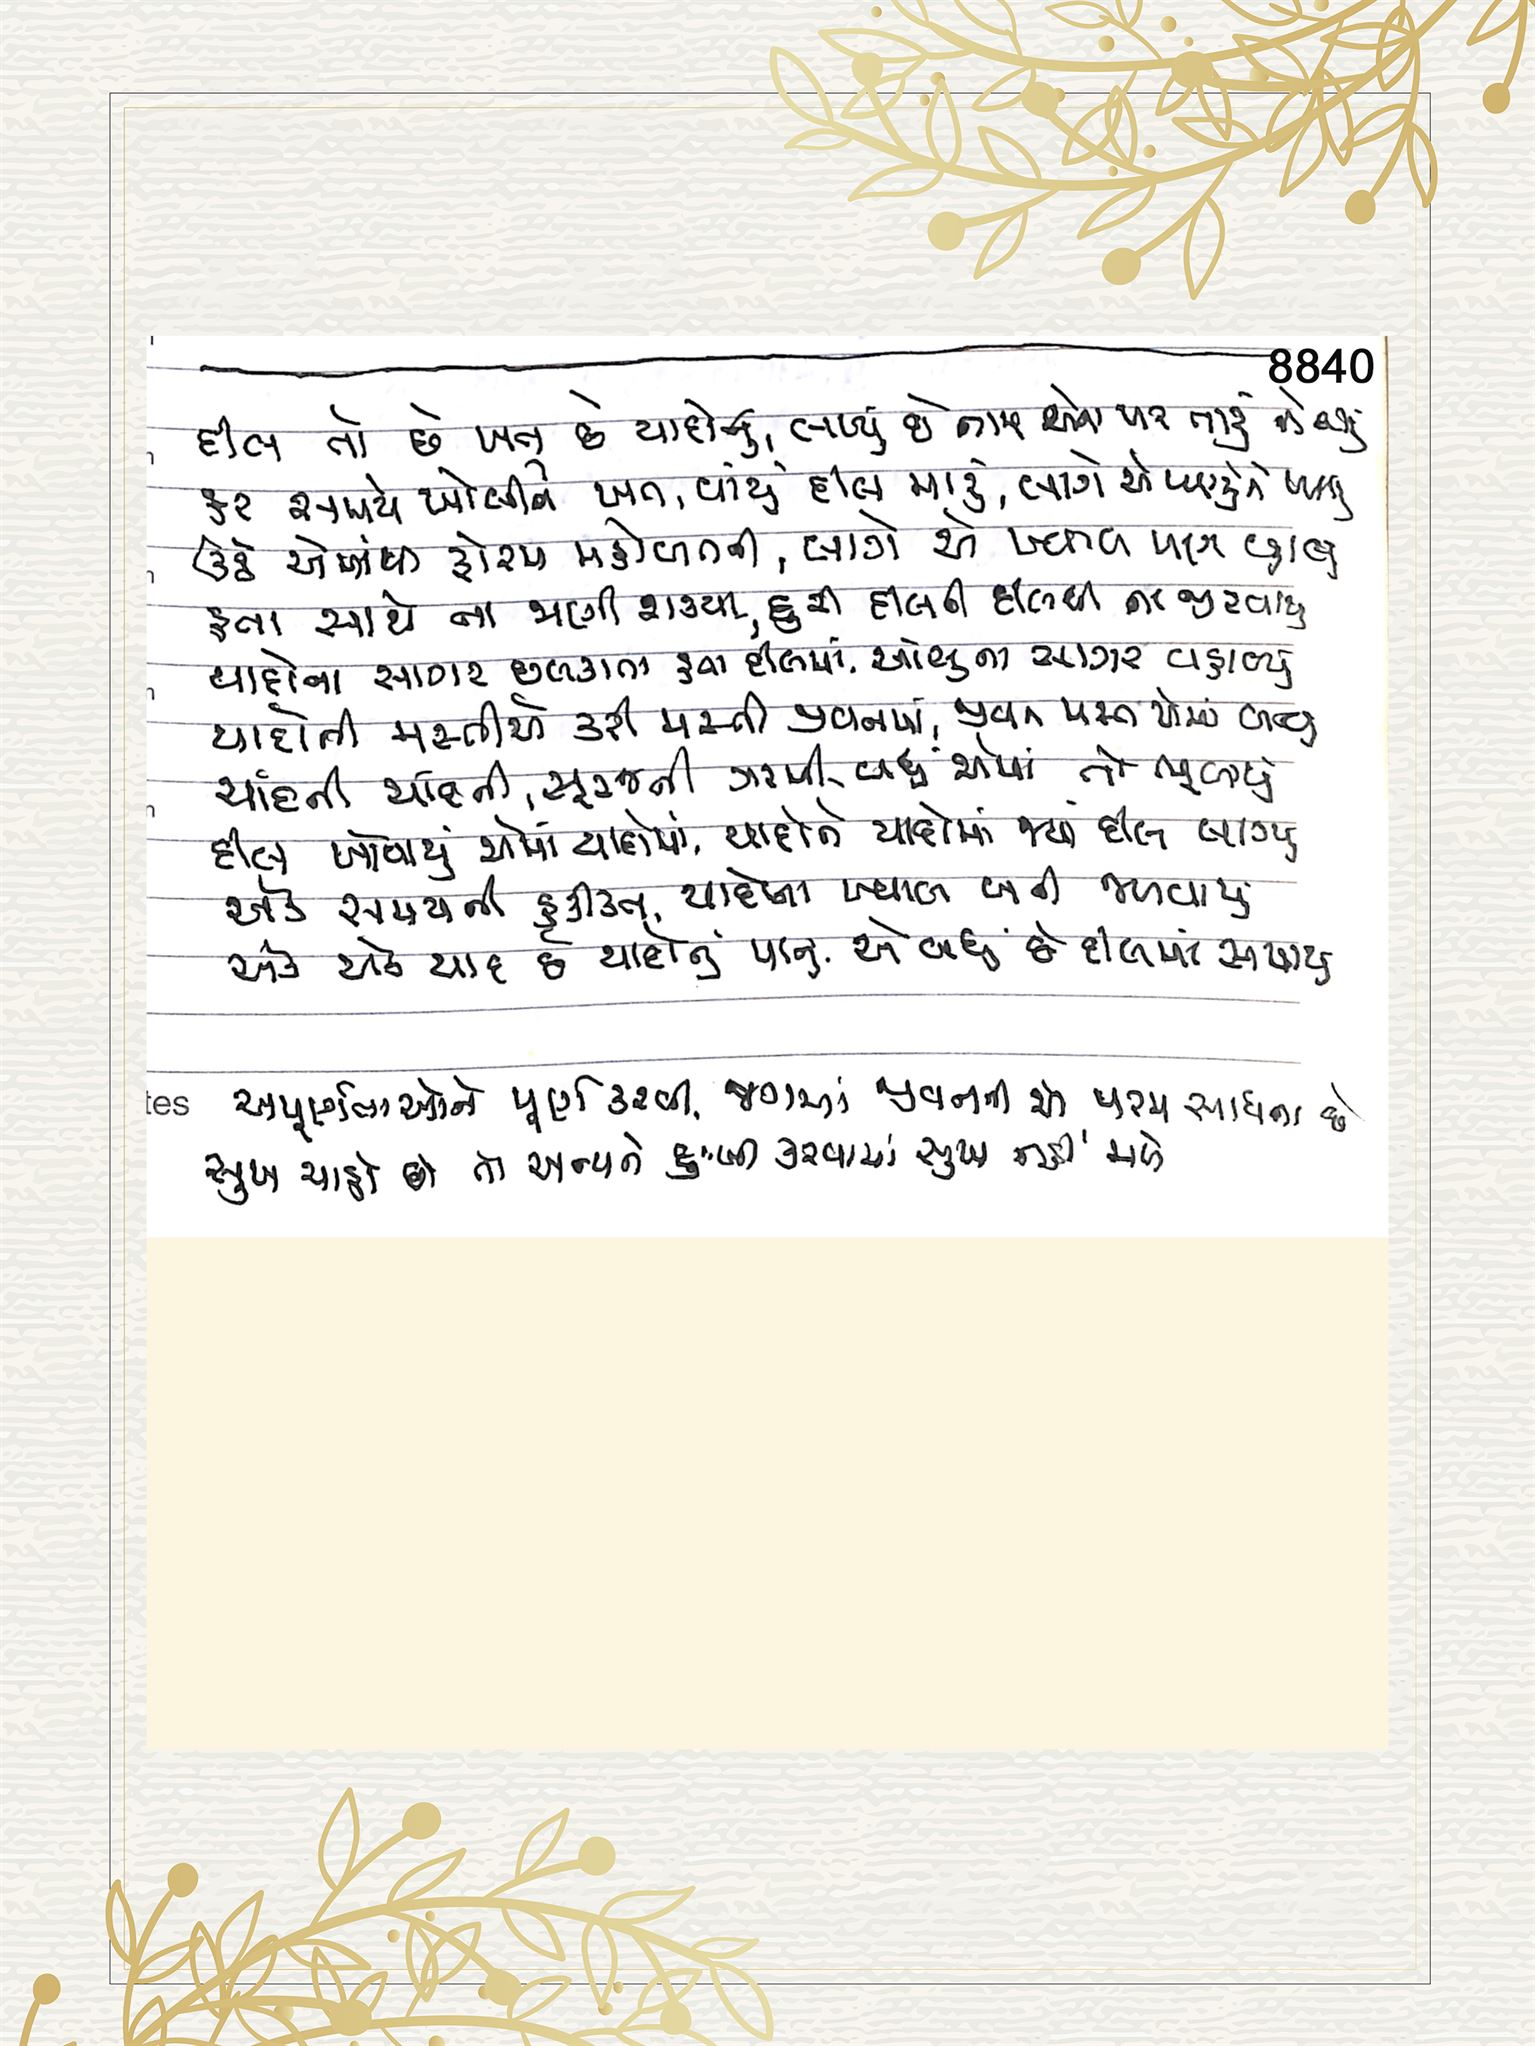 8840
દીલ તો છે ખત્ છે યાદોનું, લખ્યું છે નામ એના પર તારું ને
હર સમયે ખોલીને ખત, વાંચ્યું દીલ મારું, લાગે એ
ઉઠે એમાંથી ફોરમ મહોબતની, લાગે એ ખ્વાબ પણ વ્હાલુ
હતા સાથે ના મળી શક્યા, દુરી દીલની દીલથી ના જીરવાયુ
યાદોના સાગર છલકાતા હતા દીલમાં. આંસુના સાગર વહાવ્યું
યાદોની મસ્તીએ કરી મસ્તી જીવનમાં, જીવન મસ્ત એમાં બન્યુ
ચાંદની ચાંદની, સૂરજની ગરમી, બધું એમાં તો ભૂલાયું
દીલ ખોવાયું એમાં યાદોમાં. યાદોને યાદોમાં જ્યાં દીલ લાગ્યુ
એક સમયની હકીકત, યાદોના ખ્યાલ બની જળવાયું
એક એક યાદ છે યાદોનું પાનુ. એ બધું છે દીલમાં સમાયુ
tes અપૂર્ણતાઓને પૂર્ણ કરવી, જગમાં જીવનની એ પરમ સાધના છે
સુખ ચાહો છો તો અન્યને દુઃખી કરવામાં સુખ નહીં મળે